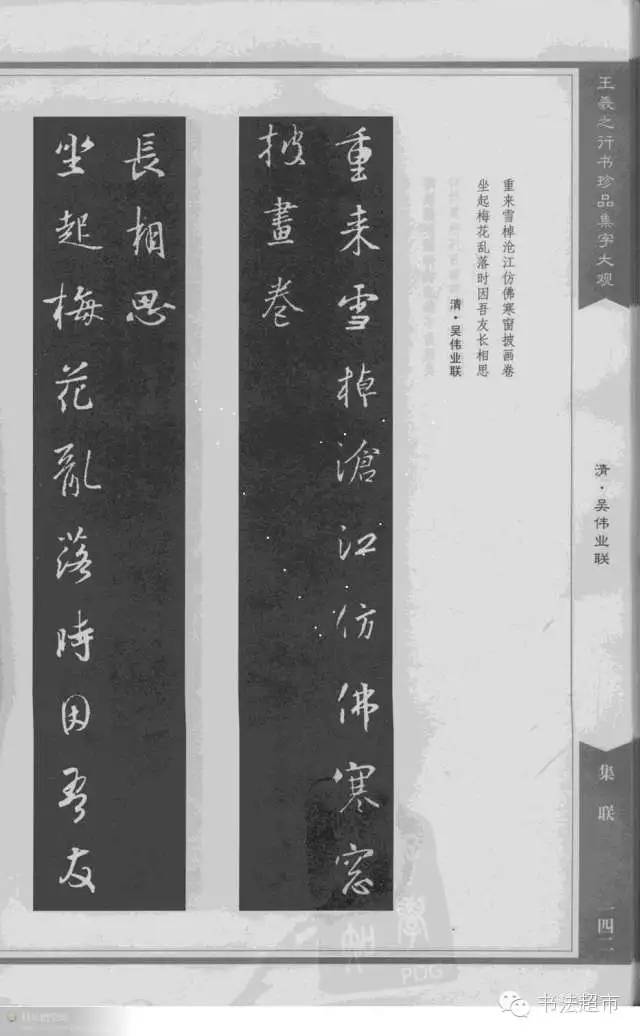 王羲之行书珍品集字大观
清·吴伟业联
集联
一四二
重来雪棹沧江仿佛寒窗披画卷
坐起梅花乱落时因吾友长相思
清·吴伟业联
重来雪棹滄江仿佛寒窓
披畫卷
坐起梅花亂落時因吾友
長相思
PDG
书法超市